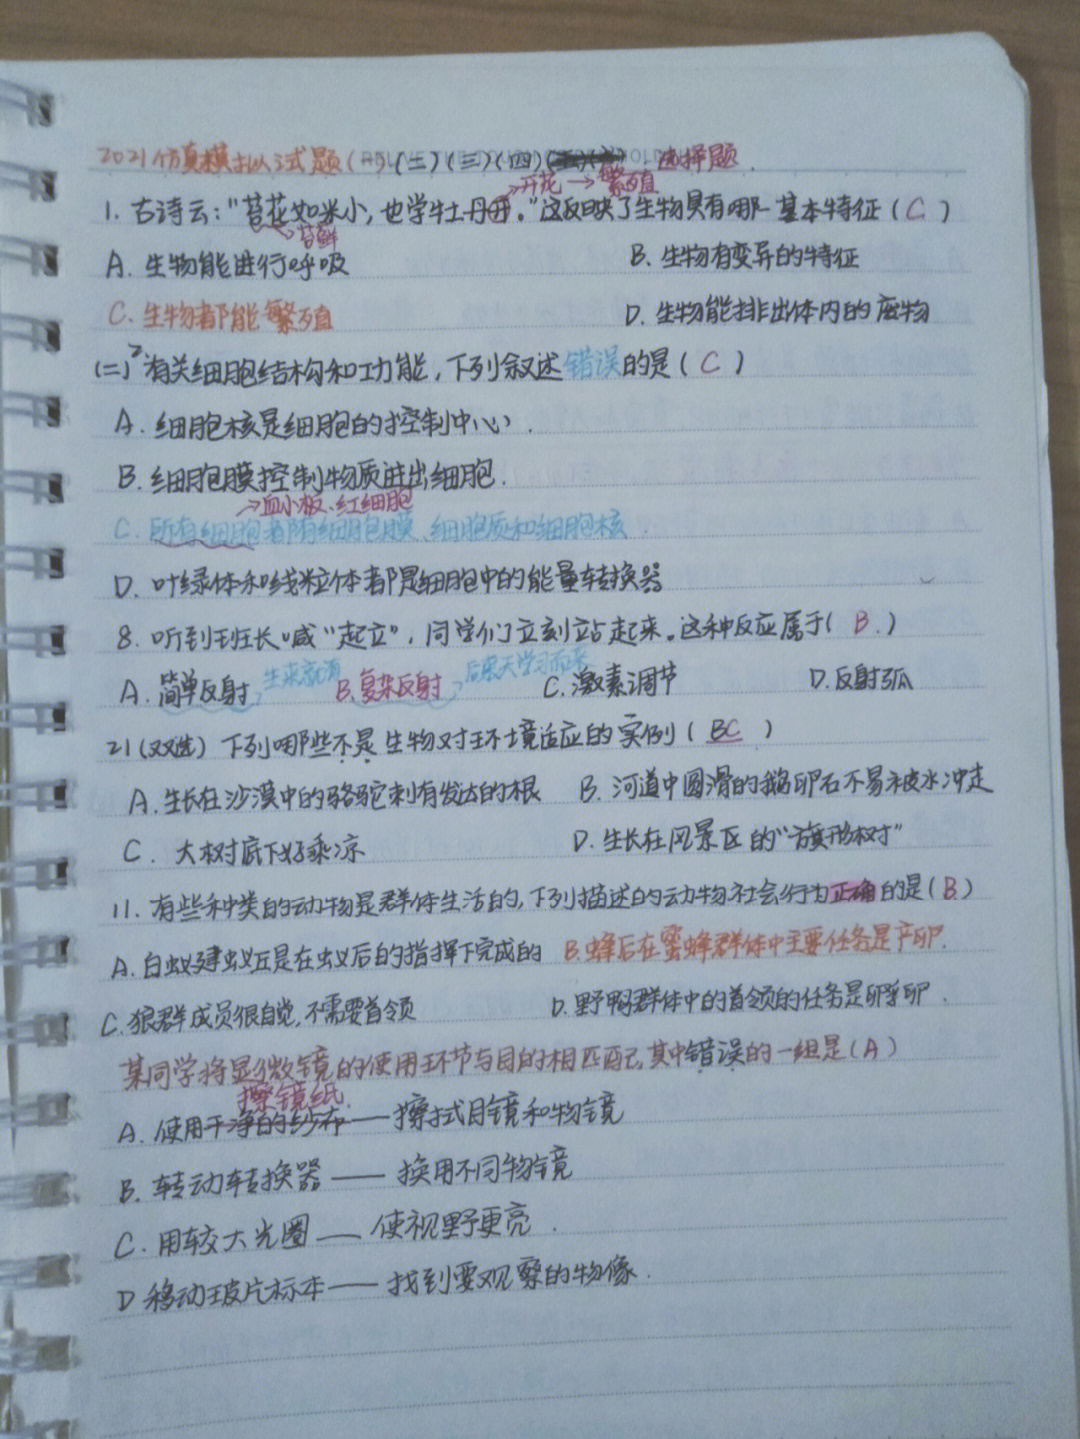 2021仿真模拟试题(一)(二)(三)(四) 选择题.
→开花→繁殖
1. 古诗云:"苔花如米小,也学牡丹开。"这反映了生物具有哪一基本特征(C)
苔藓
A. 生物能进行呼吸 B. 生物有变异的特征
C. 生物都能繁殖 D. 生物能排出体内的废物
(二)2 有关细胞结构和功能,下列叙述错误的是(C)
A. 细胞核是细胞的控制中心.
B. 细胞膜控制物质进出细胞.
→血小板、红细胞
C. 所有细胞都有细胞膜、细胞质和细胞核.
D. 叶绿体和线粒体都是细胞中的能量转换器
8. 听到班长喊"起立",同学们立刻站起来。这种反应属于(B.)
生来就有 后天学习而来
A. 简单反射 B. 复杂反射 C. 激素调节 D. 反射弧
21(双选) 下列哪些不是生物对环境适应的实例(BC)
A. 生长在沙漠中的骆驼刺有发达的根 B. 河道中圆滑的鹅卵石不易被水冲走
C. 大树底下好乘凉 D. 生长在风景区的"旗形树"
11. 有些种类的动物是群体生活的,下列描述的动物社会行为正确的是(B)
A. 白蚁建蚁丘是在蚁后的指挥下完成的 B. 蜂后在蜜蜂群体中主要任务是产卵.
C. 狼群成员很自觉,不需要首领 D. 野鸭群体中的首领的任务是孵卵.
某同学将显微镜的使用环节与目的相匹配,其中错误的一组是(A)
擦镜纸.
A. 使用干净的纱布——擦拭目镜和物镜
B. 转动转换器——换用不同物镜
C. 用较大光圈——使视野更亮.
D 移动玻片标本——找到要观察的物像.